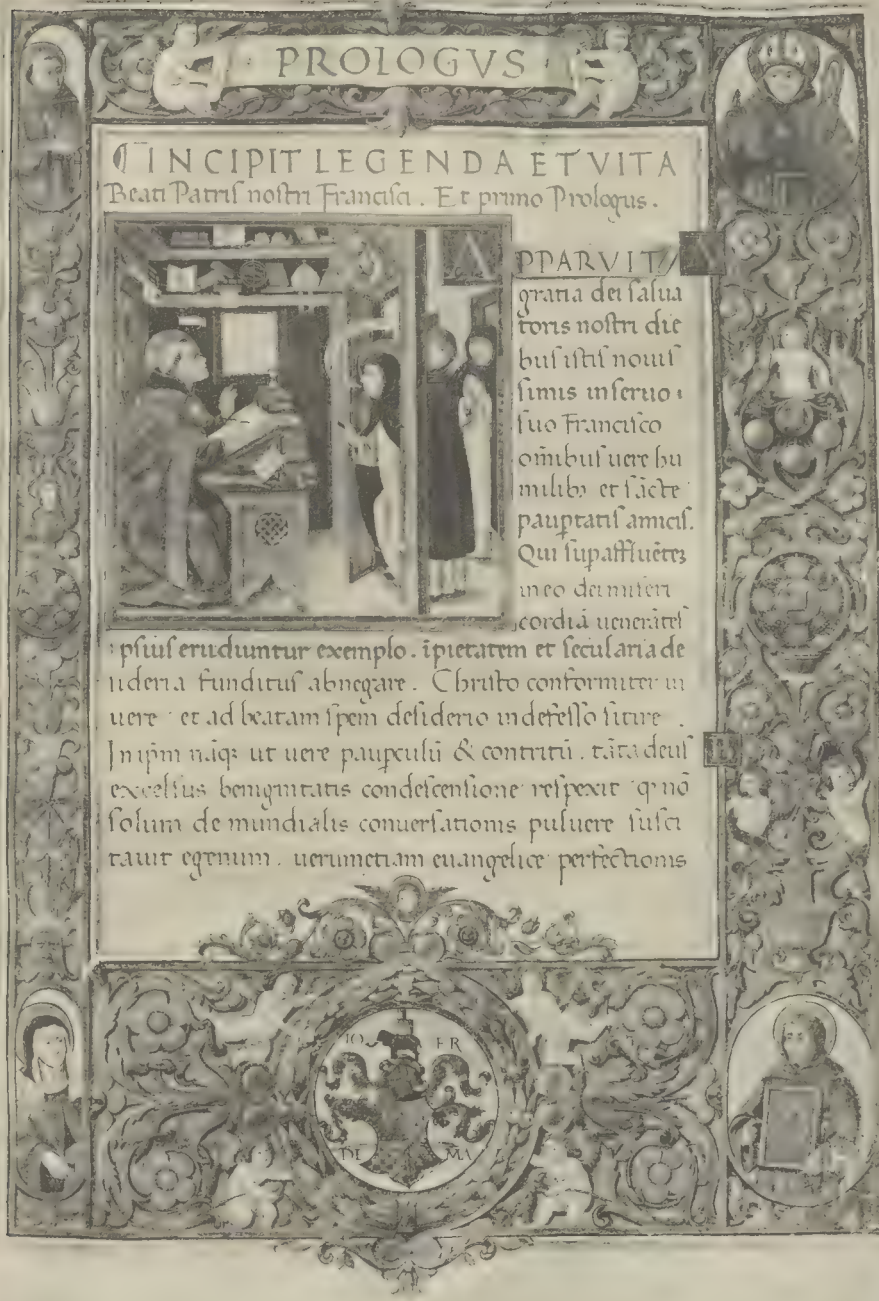 PROLOGVS
¶ INCIPIT LEGENDA ET VITA
Beati Patriſ noſtri Franciſci. Et primo Prologus.
APPARVIT
gratia dei ſalua
toris noſtri die
buſ iſtiſ nouiſ
ſimis in ſeruo
ſuo Franciſco
om̄ibuſ uere hu
milibꝫ et ſācte
paup̱tatiſ amiciſ.
Qui ſup̱affluētē
in eo dei miſeri
cordiā uenerāteſ
ipſiuſ erudiuntur exemplo. īpietatem et ſecularia de
ſideria fundituſ abnegare. Chriſto conformiter ui
uere et ad beatam ſpem deſiderio indefeſſo ſitire.
In ip̄m nāqꝫ ut uere paup̱culū & contritū. tāta deuſ
excelſus benignitatis condeſcenſione reſpexit q̱ nō
ſolum de mundialis conuerſationis puluere ſuſci
tauit egenum. uerumetiam euangelice perfectionis
IO FR
DE MA